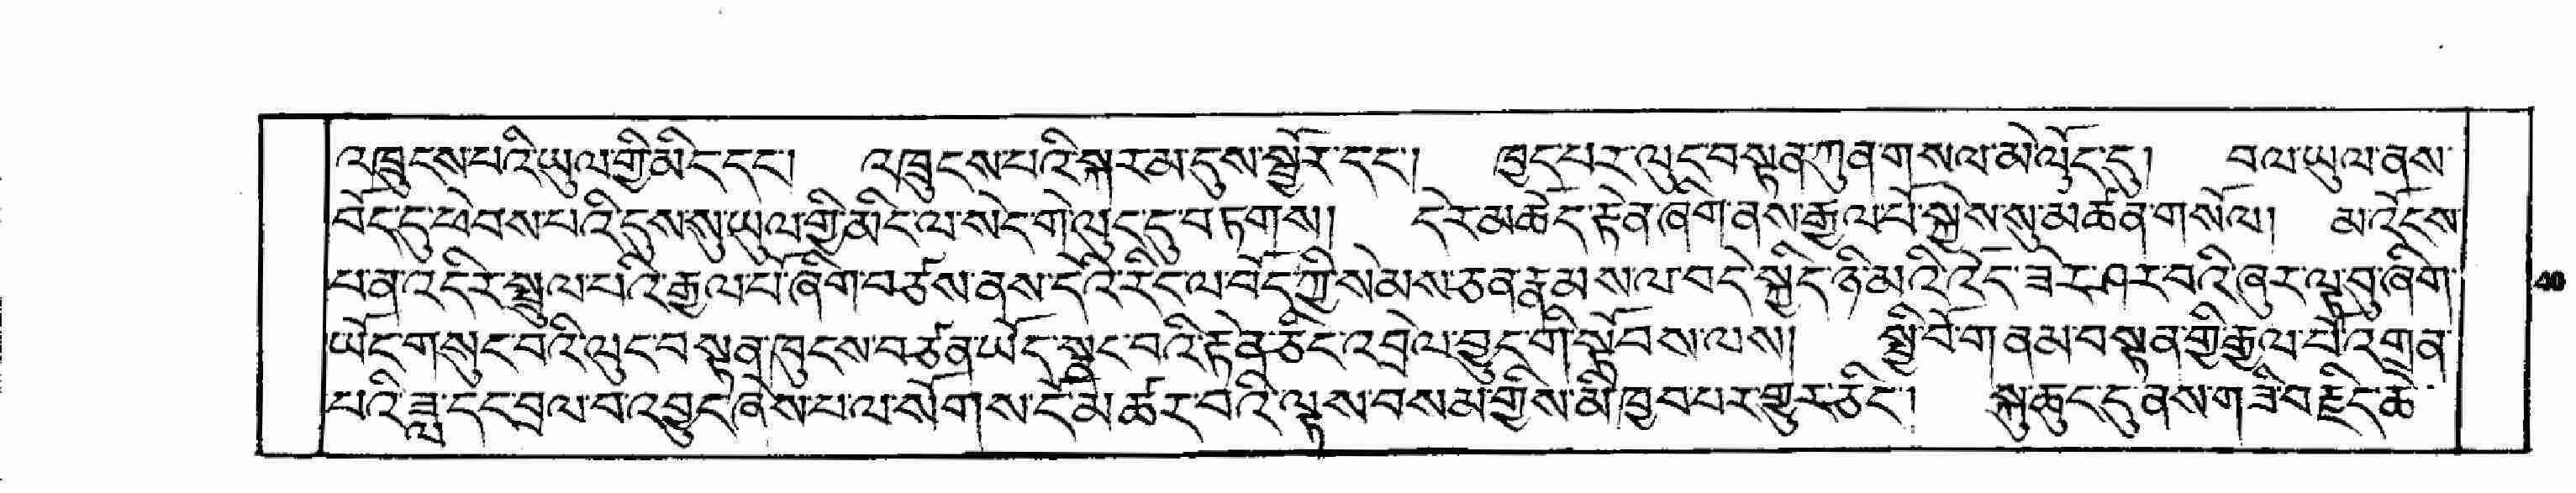 འཁྲུངས་པའི་ཡུལ་གྱི་མིང་དང་། འཁྲུངས་པའི་སྐར་མ་དུས་སྦྱོར་དང་། ཁྱད་པར་ལུང་བསྟན་ཀུན་གསལ་མེ་ལོང་དུ། བལ་ཡུལ་ནས་
བོད་དུ་ཕེབས་པའི་དུས་སུ་ཡུལ་གྱི་མིང་ལ་སེང་གེ་ལུང་དུ་བཏགས། དེར་མཆོད་རྟེན་ཞིག་ནས་རྒྱལ་པོ་སྐྱེས་སུ་མཚན་གསོལ། མ་འོངས་
པ་ན་འདིར་སྤྲུལ་པའི་རྒྱལ་པོ་ཞིག་བཙས་ནས་དེའི་རིང་ལ་བོད་ཀྱི་སེམས་ཅན་རྣམས་ལ་བདེ་སྐྱིད་ཉི་མའི་འོད་ཟེར་ཤར་བའི་ཞུར་ལྟ་བུ་ཞིག་
ཡོང་གསུང་བའི་ལུང་བསྟན་ཁུངས་བཙན་ཡོད་སྣང་བའི་རྟེན་ཅིང་འབྲེལ་བྱུང་གི་སྟོབས་ལས། སྤྱི་བོ་གནམ་བསྟན་གྱི་རྒྱལ་པོ་འགྲན་
པའི་ཟླ་དང་བྲལ་བ་འབྱུང་ཞེས་པ་ལ་སོགས་ངོ་མཚར་བའི་ལྟས་བསམ་གྱིས་མི་ཁྱབ་པར་གྱུར་ཅིང་། སྐུ་ཆུང་དུ་ནས་གཟི་བརྗིད་ཆེ་
40